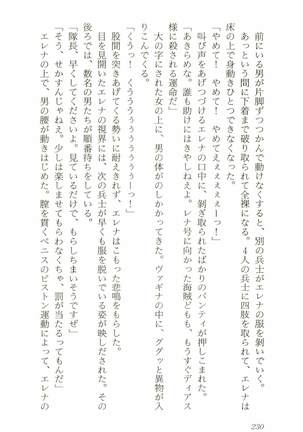 前にいる男が片脚ずつつかんで動けなくすると、別の兵士がエレナの服を剥いでいく。
あっという間に下着まで破り取られて全裸になる。4人の兵士に四肢を取られて、エレナは
床の上で身動きひとつできなくなった。
「やめて！　やめてえぇぇぇぇーっ！」
叫び声をあげつづけるエレナの口中に、剥ぎ取られたばかりのパンティが押しこまれる。
「あきらめな。誰も助けにはきやしねえよ。レナ号に向かった海賊どもも、もうすぐディアス
様に殺される運命だ」
大の字にされた女の上に、男の体がのしかかってきた。ヴァギナの中に、ググッと異物が入
りこんでくる。
「くうっ！　くうううぅぅぅーっ！」
股間を突きあげてくる勢いに耐えきれず、エレナはこもった悲鳴をもらした。
目を見開いたエレナの視界には、次の兵士が早くも服を脱いでいる姿が映しだされた。その
後ろでは、数名の男たちが順番待ちをしている。
「隊長、早くしてくださいよ。見ているだけで、もらしちまいそうですぜ」
「そう、せかすんじゃねえ。少しは楽しませてもらわなくちゃ、罰が当たるってもんだ」
エレナの上で、男の腰が動きはじめた。膣を貫くペニスのピストン運動によって、エレナの
230